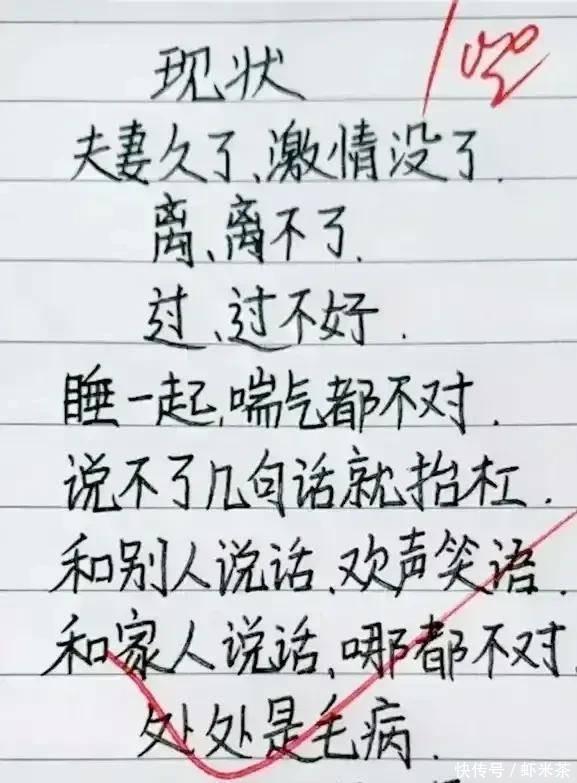 现状
夫妻久了、激情没了.
离、离不了.
过、过不好.
睡一起,喘气都不对.
说不了几句话就抬杠.
和别人说话、欢声笑语.
和家人说话、哪都不对.
处处是毛病.
快传号/虾米茶